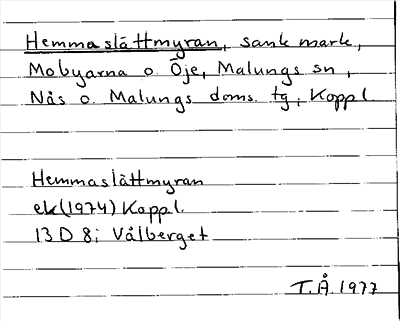 Hemmaslättmyran, sank mark,
Mobyarna o. Öje, Malungs sn,
Nås o. Malungs doms. tg, Koppl.
Hemmaslättmyran
ek (1974) Koppl.
13 D 8i Vålberget
T.Å. 1977